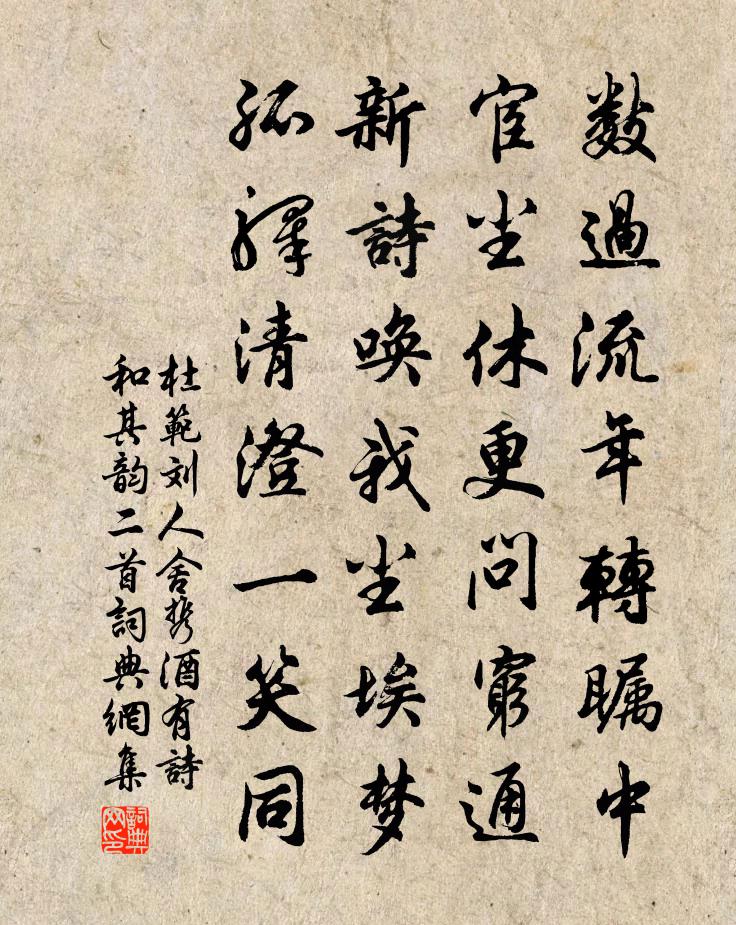 数過流年轉瞩中
宦尘休更問窮通
新詩唤我尘埃梦
孤驛清澄一笑同
杜範刘人舍携酒有詩
和其韵二首詞典網集
詞典网印